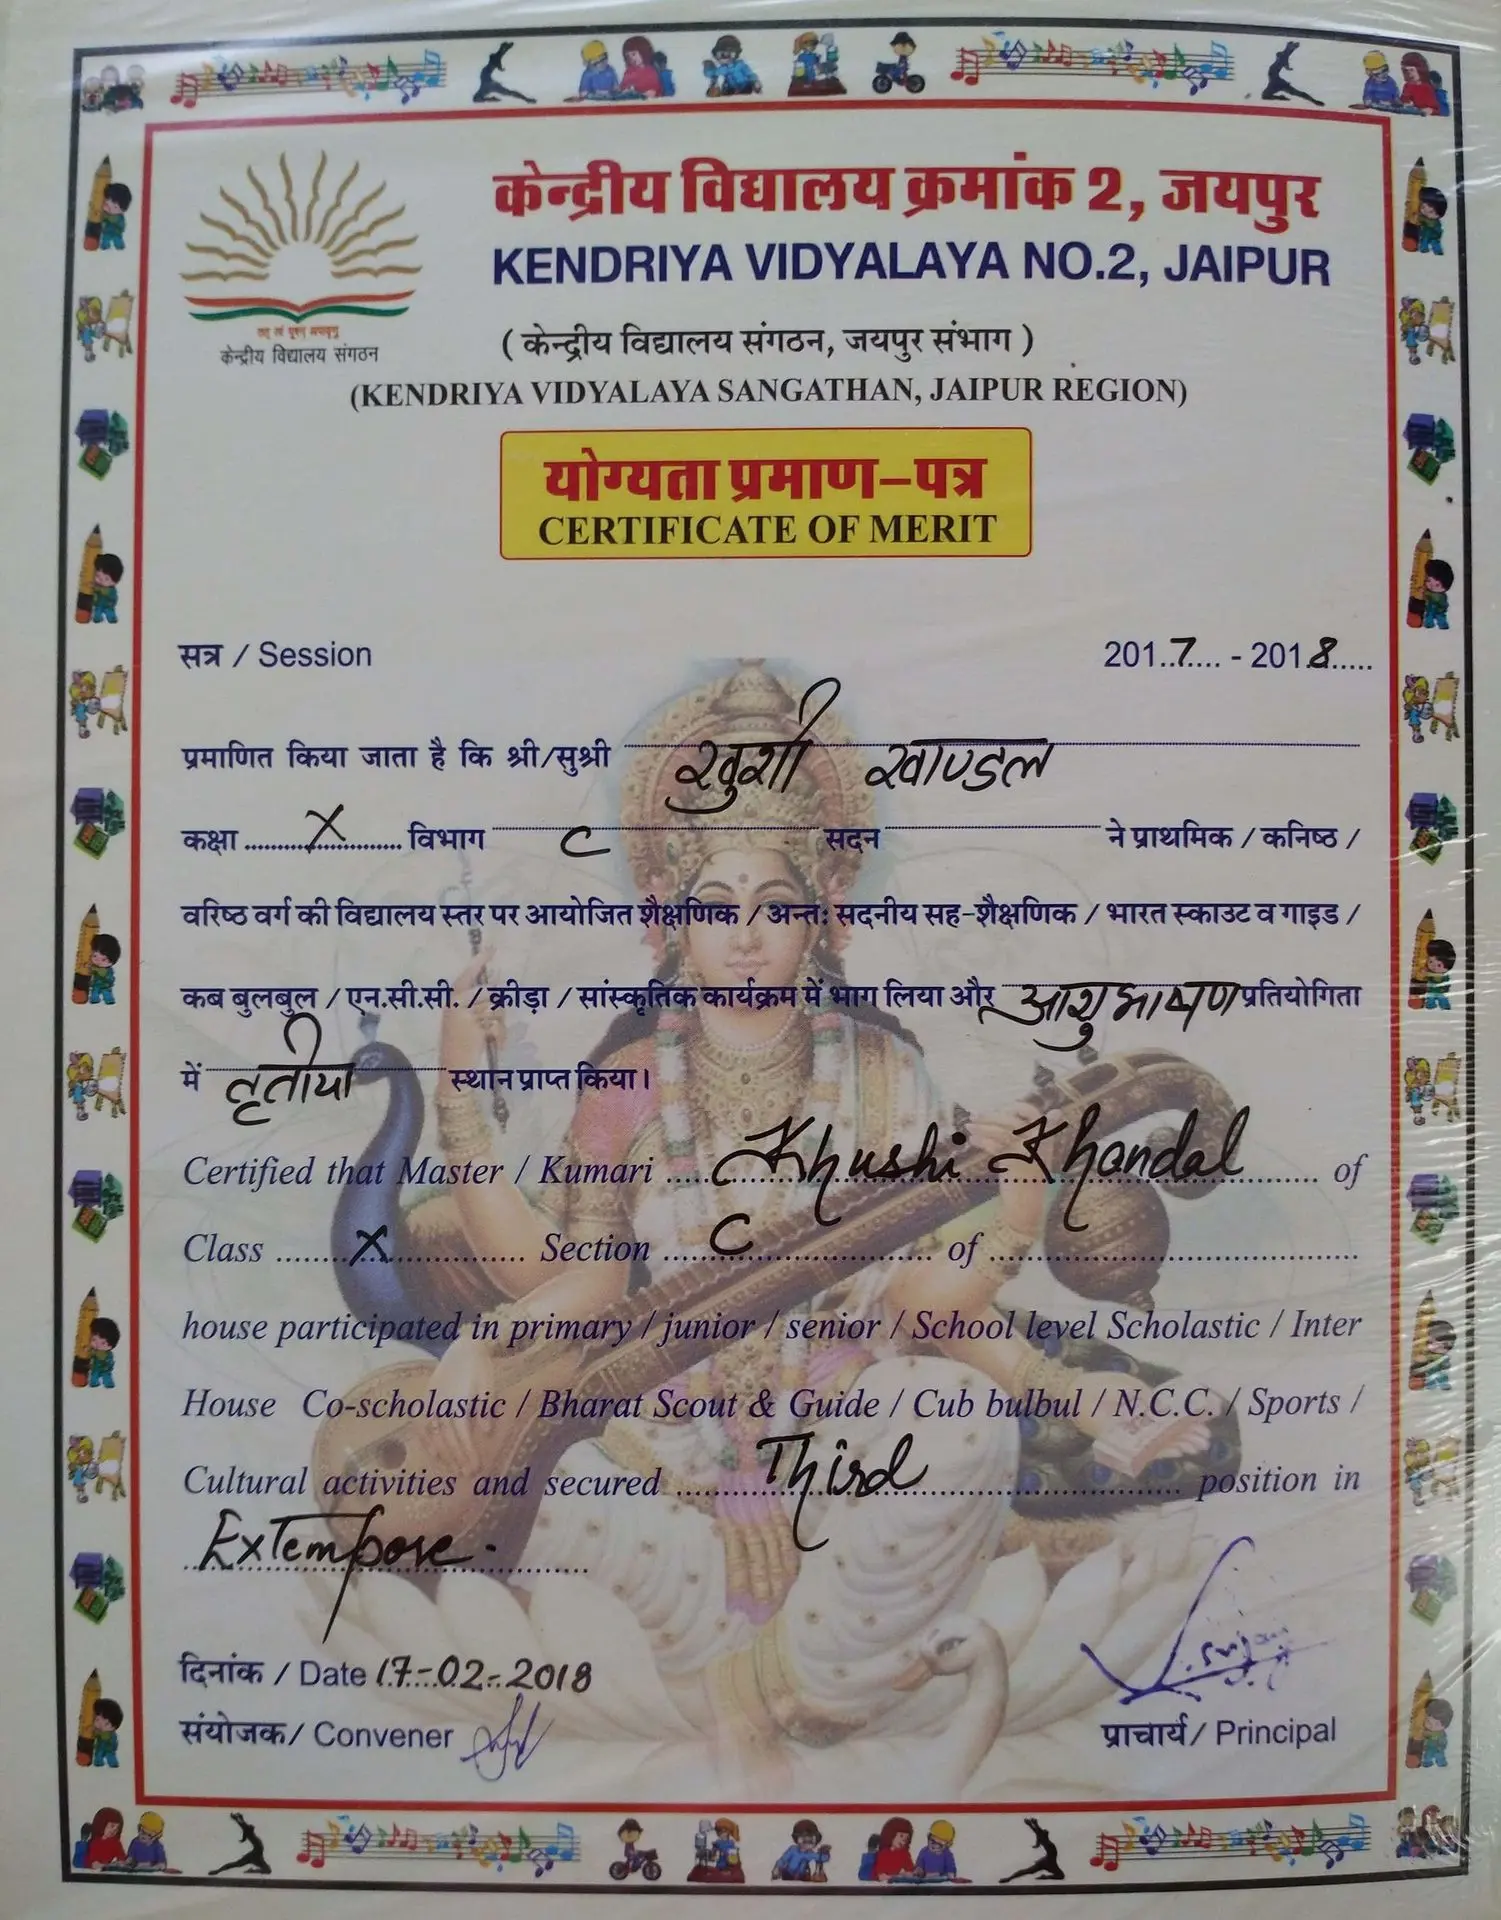 केन्द्रीय विद्यालय क्रमांक 2, जयपुर
KENDRIYA VIDYALAYA NO.2, JAIPUR
केन्द्रीय विद्यालय संगठन
( केन्द्रीय विद्यालय संगठन, जयपुर संभाग )
(KENDRIYA VIDYALAYA SANGATHAN, JAIPUR REGION)
योग्यता प्रमाण-पत्र
CERTIFICATE OF MERIT
सत्र / Session 201..7.... - 201.8.....
प्रमाणित किया जाता है कि श्री/सुश्री खुशी खाण्डल
कक्षा ...X... विभाग C सदन ने प्राथमिक / कनिष्ठ /
वरिष्ठ वर्ग की विद्यालय स्तर पर आयोजित शैक्षणिक / अन्तः सदनीय सह-शैक्षणिक / भारत स्काउट व गाइड /
कब बुलबुल / एन.सी.सी. / क्रीड़ा / सांस्कृतिक कार्यक्रम में भाग लिया और आशुभाषण प्रतियोगिता
में तृतीया स्थान प्राप्त किया।
Certified that Master / Kumari ..... Khushi Khandal ..... of
Class ...X... Section ...C... of ...
house participated in primary / junior / senior / School level Scholastic / Inter
House Co-scholastic / Bharat Scout & Guide / Cub bulbul / N.C.C. / Sports /
Cultural activities and secured ... Third ... position in
Extempore.
दिनांक / Date 17-02-2018
संयोजक/ Convener
प्राचार्य/ Principal